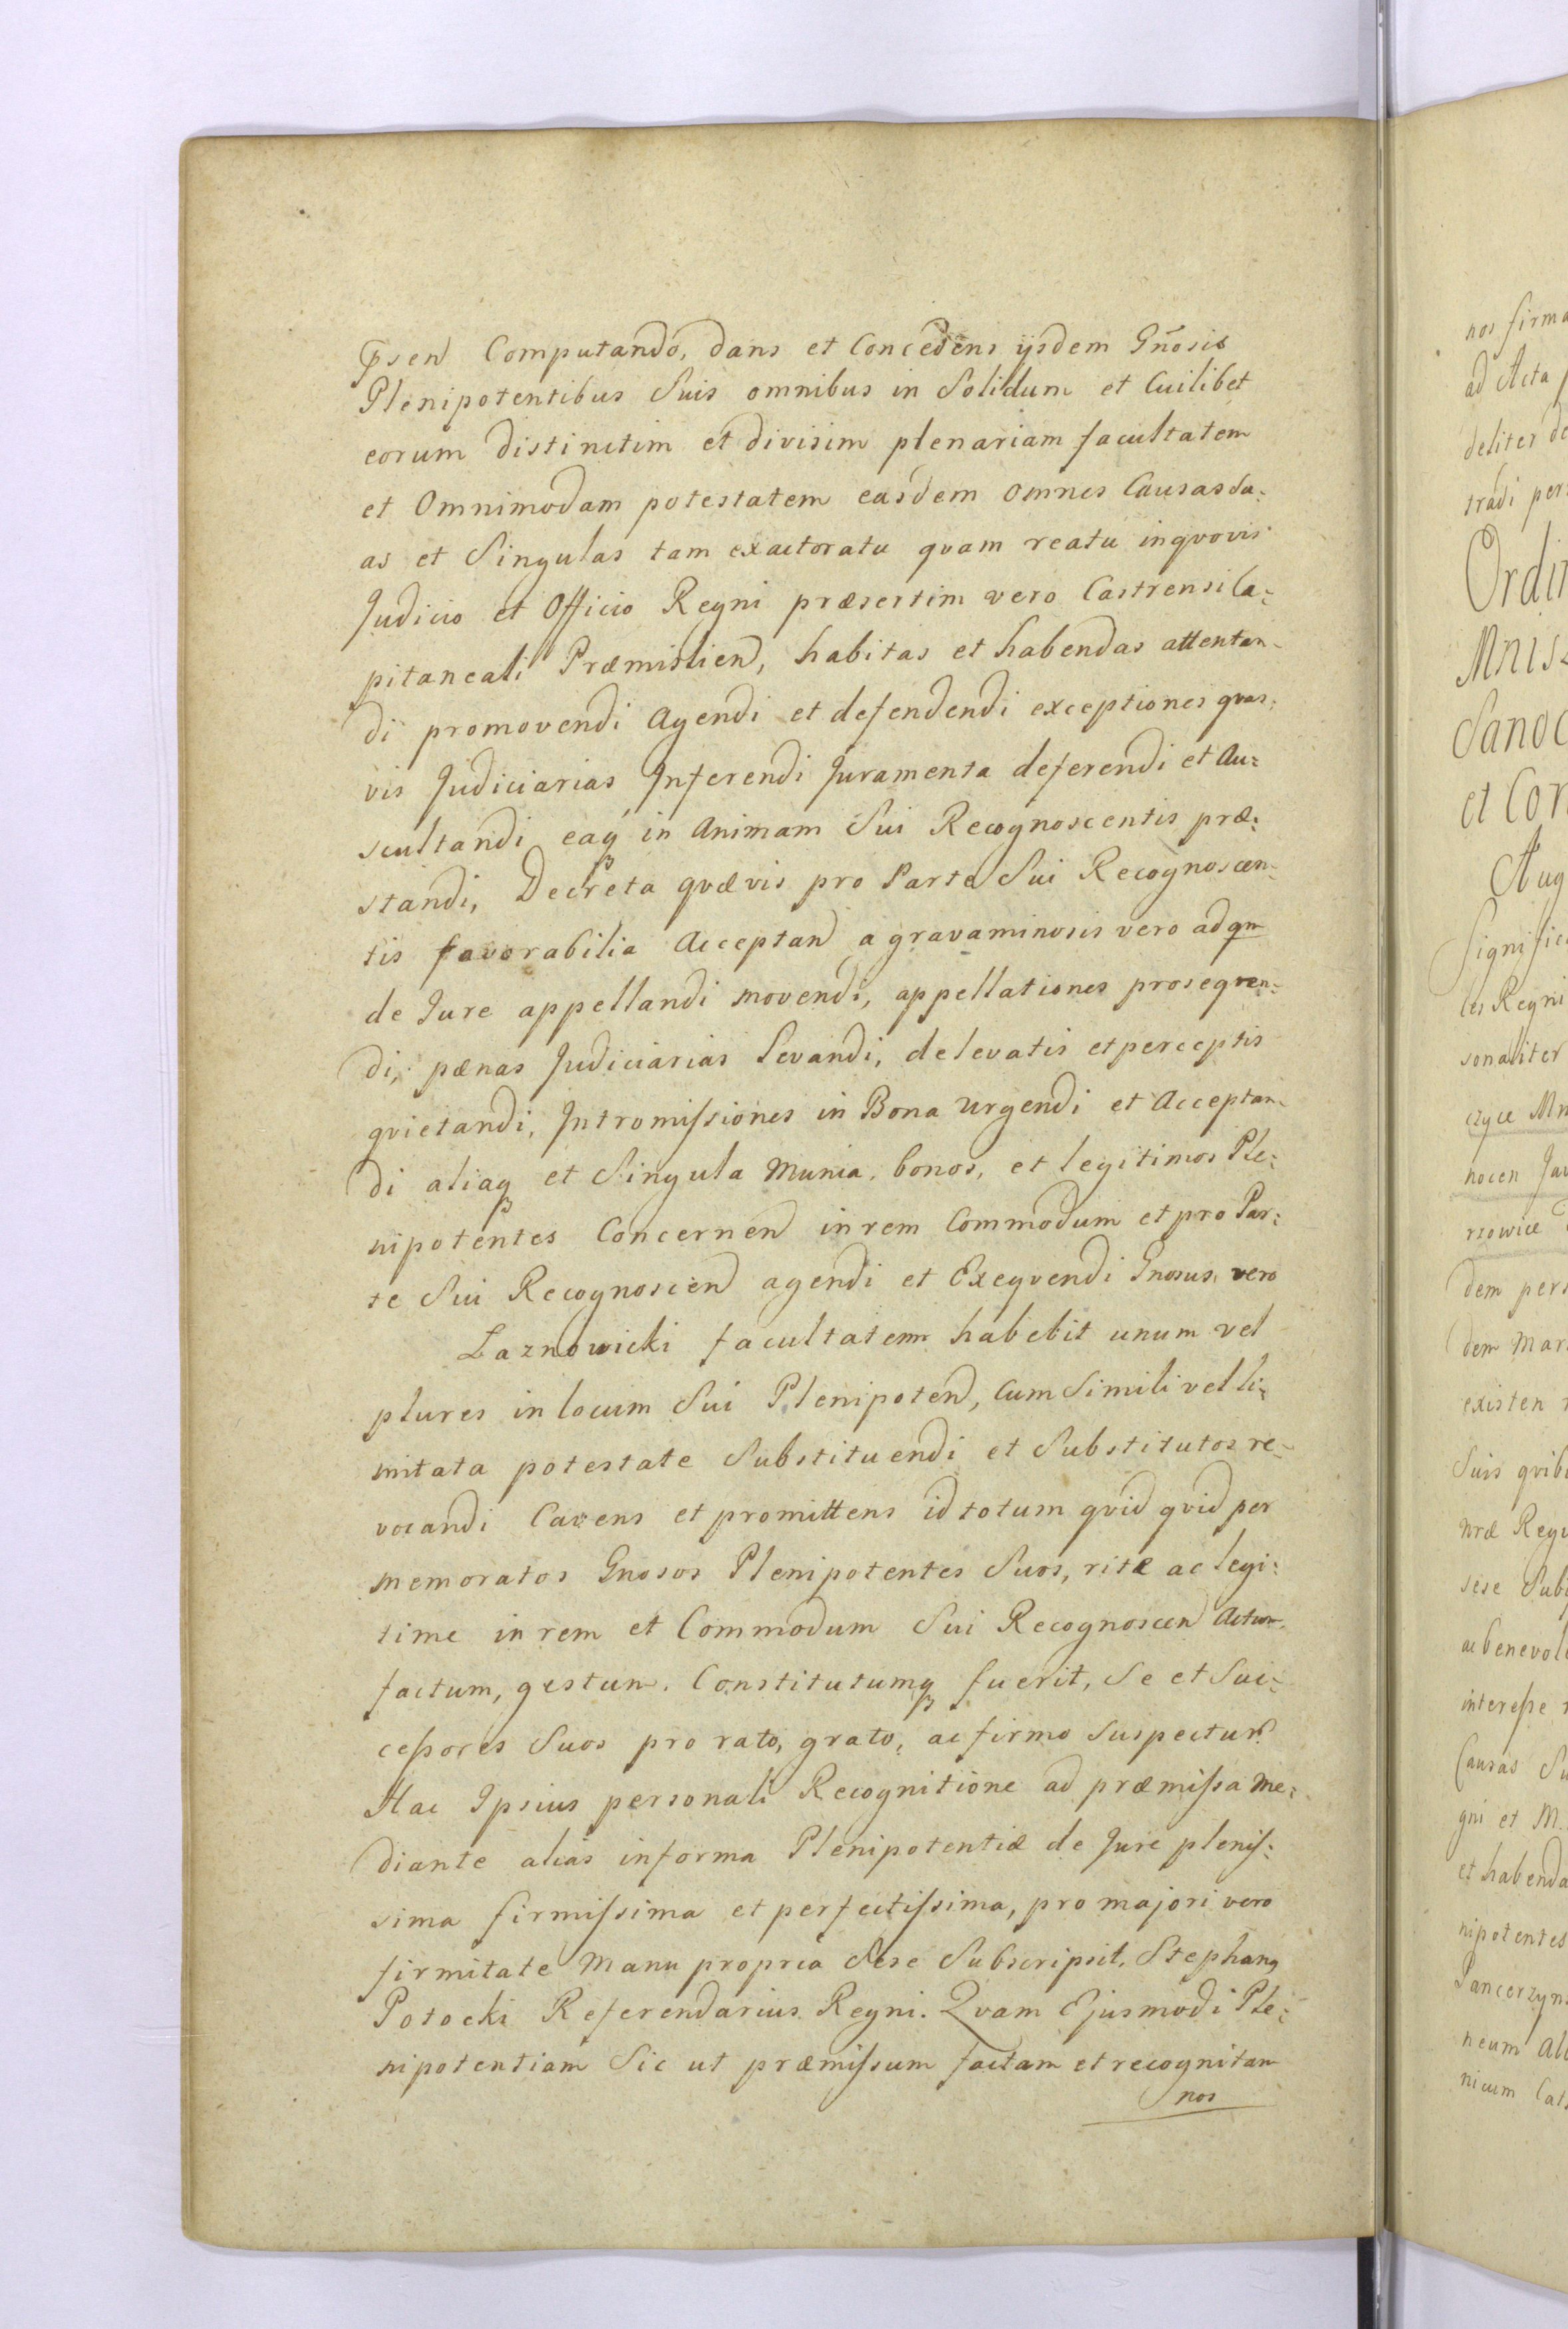 Psen Computando, dans et Concedens ijsdem Gñosis
Plenipotentibus Suis omnibus in Solidum et Cuilibet
eorum distinctim et divisim plenariam facultatem
et Omnimodam potestatem easdem omnes Causas Su:
as et Singulas tam exactoratu qvam reatu inqvovis
Judicio et Officio Regni præsertim vero Castrensi Ca:
pitaneali Præmislien, habitas et habendas attentan-
di promovendi Agendi et defendendi exceptiones qvas:
vis Judiciarias Inferendi Juramenta deferendi et Au:
scultandi eaq́ in Animam Sui Recognoscentis præ:
standi, Decreta qvævis pro Parte Sui Recognoscen-
tis favorabilia Acceptan a gravaminosis vero ad qm
de Jure appellandi movendi, appellationes proseqven:
di, pænas Judiciarias Levandi, delevatis et perceptis
qvietandi, Intromissiones in Bona Urgendi et Acceptan-
di aliaq et Singula Munia, bonos, et legitimos Ple:
nipotentes Concernen in rem Commodum et pro Par:
te Sui Recognoscen agendi et Exeqvendi Gnosus, vero
Łaznowicki facultatem habebit unum vel
plures in locum Sui Plenipoten, Cum Simili vel li:
mitata potestate Substituendi et Substitutos re-
vocandi Cavens et promittens id totum qvid qvid per
memoratos Gnosos Plenipotentes Suos, rite ac legi:
time in rem et Commodum Sui Recognoscen Actum
factum, gestum. Constitutumq fuerit, Se et Suc:
cessores Suos pro rato, grato, ac firmo suspectur
Hac Ipsius personali Recognitione ad præmissa me:
diante alias informa Plenipotentiæ de Jure plenis:
sima firmissima et perfectissima, pro majori vero
firmitate Manu propria Sese Subscripsit. Stephanq
Potocki Referendarius Regni. Qvam Ejusmodi Ple:
nipotentiam Sic ut præmissum factam et recognitam
nos
nos firma
ad Acta
deliter de
tradi per
Ordin
Mnis
Sanoc
et Cor
Aug
Signific
les Regni
sonaliter
czyce Mn
nocen Jav
rsowice
dem pers
dem Mar
existen
Suis qvib
nræ Reg
sese Sub
ac benevol
interesse
Causas Su
gni et M.
et habenda
nipotentes
Pancerzyn
neum Al
nicum Cas